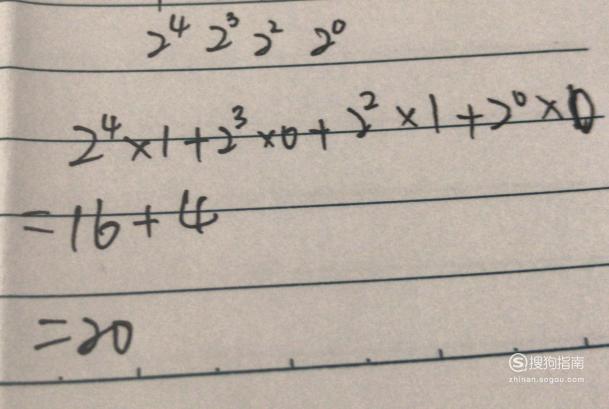 2⁴ 2³ 2² 2⁰
2⁴×1+2³×0+2²×1+2⁰×0
=16+4
=20
搜狗指南
zhinan.sogou.com